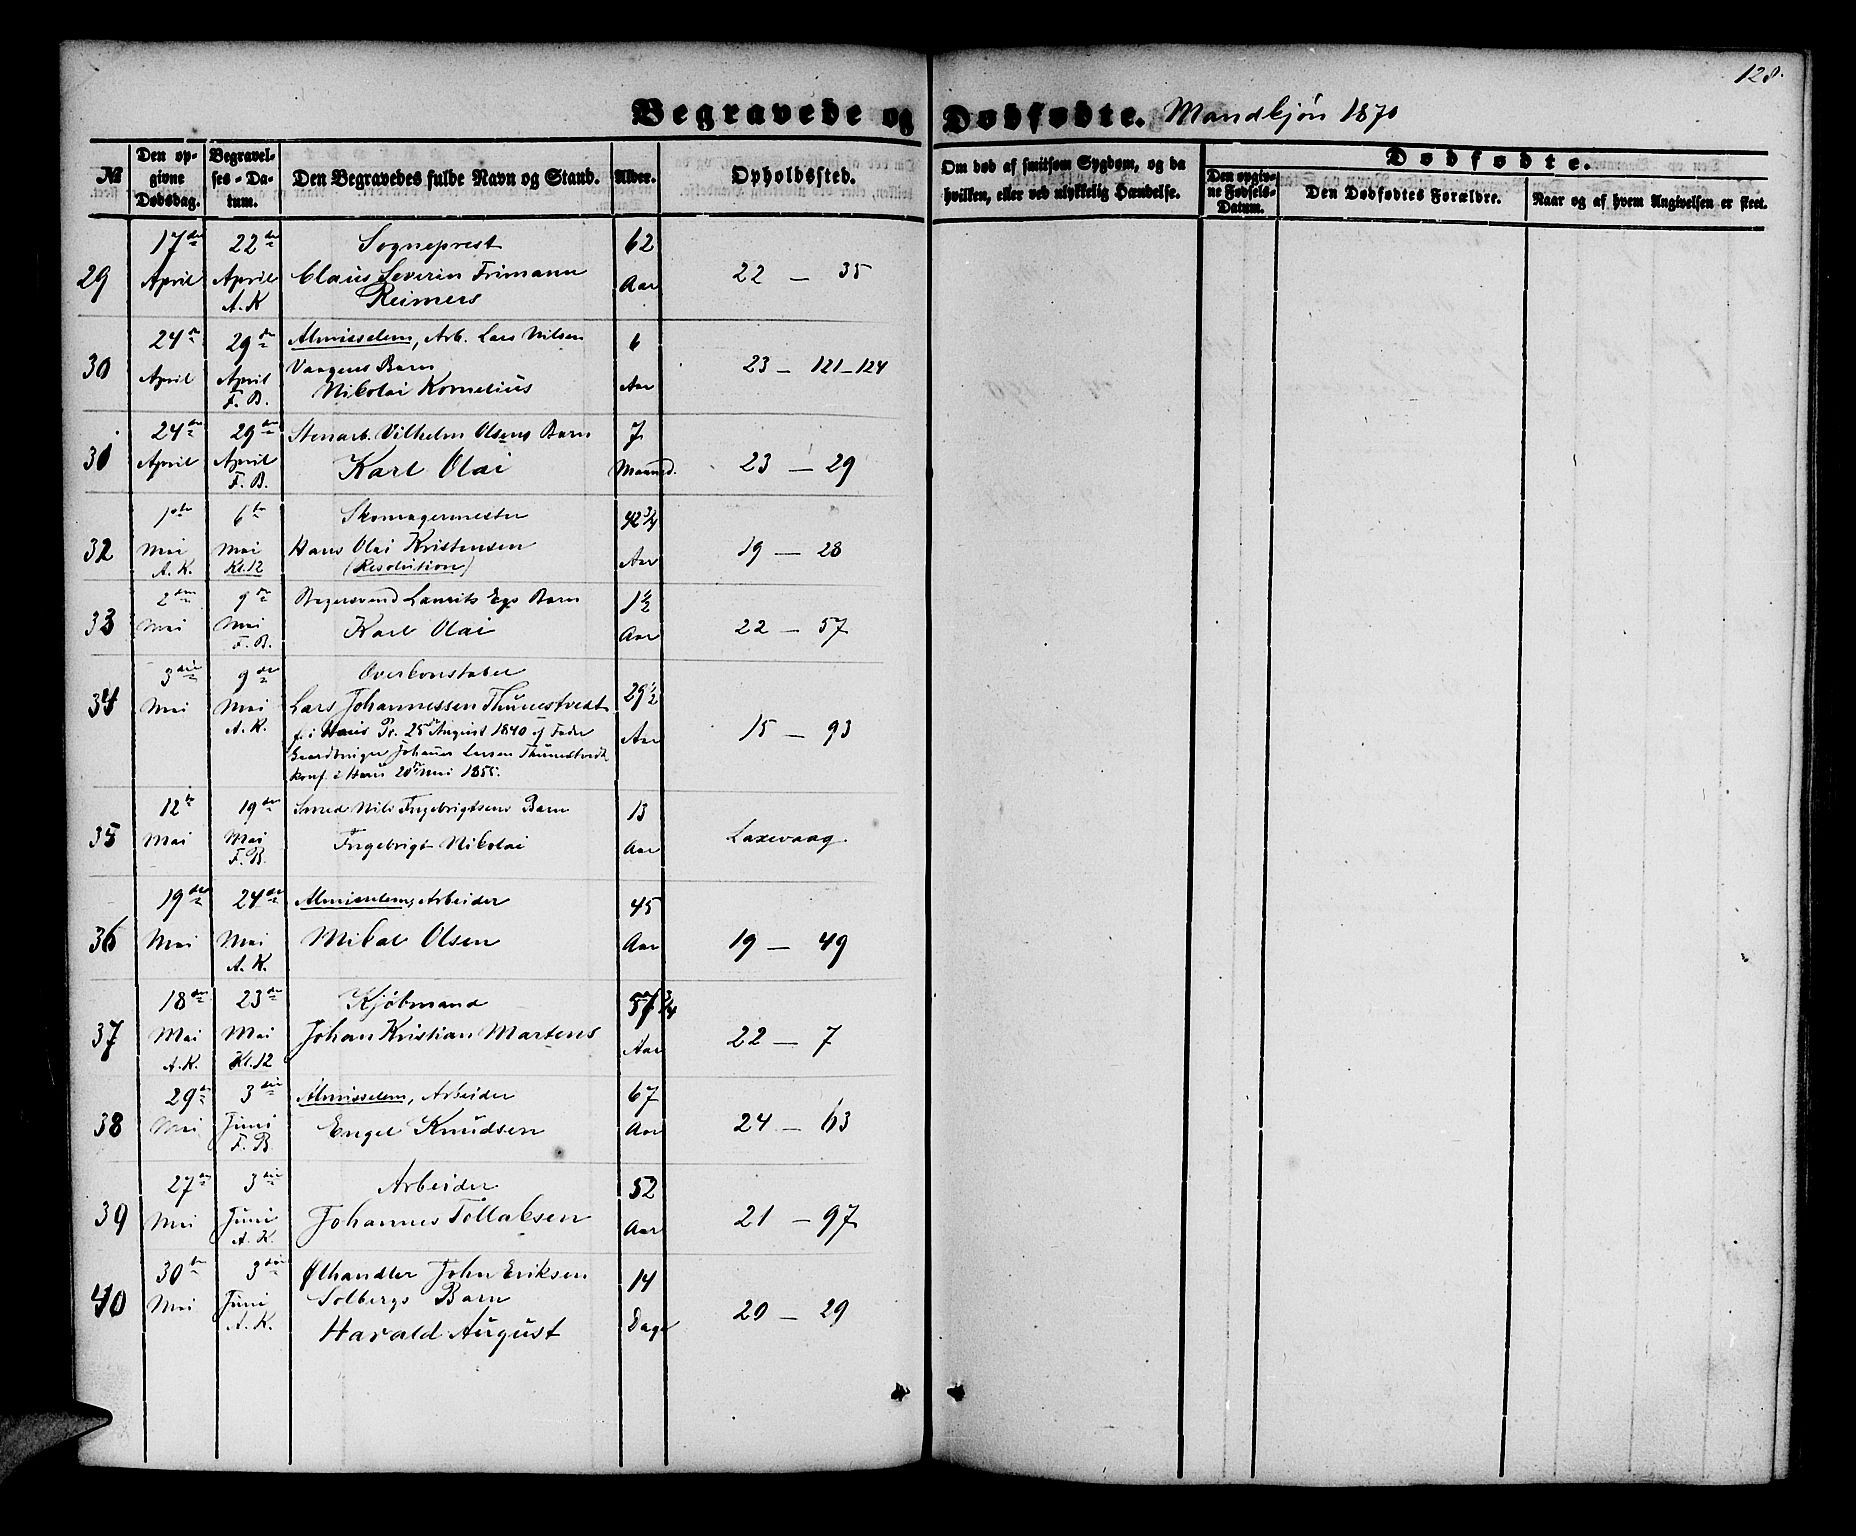 128.
Begravede og Dødfødte. Mandkjön 1870
№ Den opgivne Dødsdag. Begravelses-Datum. Den Begravedes fulde Navn og Stand. Alder. Opholdssted. Om død af smitsom Sygdom, og da hvilken, eller ved ulykkelig Hændelse. Dødfødte. Den opgivne Fødsels-Datum. Den Dødfødtes Forældre. Naar og af hvem Angivelsen er skeet.
17de 22de Sogneprest 62
29 April April Claus Severin Frimann Aar 22 — 35
A.K Reimers
24de 29de Almisselem, Arb. Lars Nilsen 6
30 April April Vaagenes Barn Aar 23 — 121-124
F.B. Nikolai Kornelius
24de 29de Stenarb. Vilhelm Olsens Barn 7
31 April April Karl Olai Maaned. 23 — 29
F.B.
1ste 6te Skomagermester 42 3/4
32 Mai Mai Hans Olai Kristensen Aar 19 — 28
A.K. Kl.12 (Resolution)
2den 9de Bagersvend Laurits Egs Barn 1 1/2
33 Mai Mai Karl Olai Aar 22 — 57
F.B.
3die 9de Overkonstabel 29 1/2
34 Mai Mai Lars Johannessen Thunestvedt Aar 15 — 93
A.K. f. i Haus Pr. 25de August 1840 af Fader
Gaardbruger Johannes Larsen Thunestvedt
konf. i Haus 20de Mai 1855.
12te 19de Smed Nils Ingebrigtsens Barn 13
35 Mai Mai Ingebrigt Nikolai Aar Laxevaag.
F.B.
19de 24de Almisselem, Arbeider 45
36 Mai Mai Mikal Olsen Aar 19 — 49
A.K.
18de 23de Kjöbmand 57 3/4
37 Mai Mai Johan Kristian Martens Aar 22 — 7
A.K. Kl.12
29de 3die Almisselem, Arbeider 67
38 Mai Juni Engel Knudsen Aar 24 — 63
F.B
27de 3die Arbeider 52
39 Mai Juni Johannes Tollaksen Aar 21 — 97
A.K.
30te 3die Ølhandler John Eriksen 14
40 Mai Juni Solbergs Barn Dage 20 — 29
A.K. Harald August